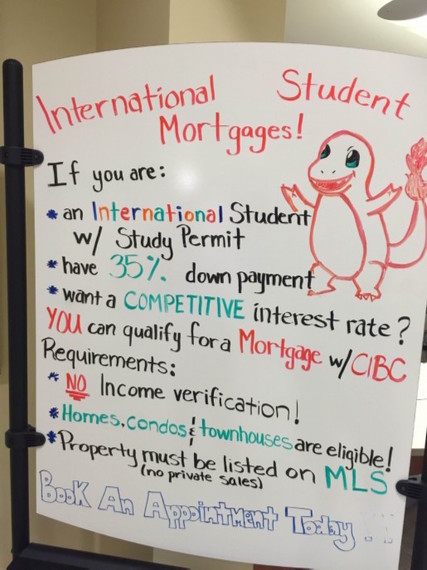 International Student
Mortgages!
If you are:
* an International Student
w/ Study Permit
* have 35% down payment
* want a COMPETITIVE interest rate?
YOU can qualify for a Mortgage w/CIBC
Requirements:
* NO Income verification!
* Homes, condos & townhouses are eligible!
* Property must be listed on MLS
(no private sales)
Book An Appointment Today!!!